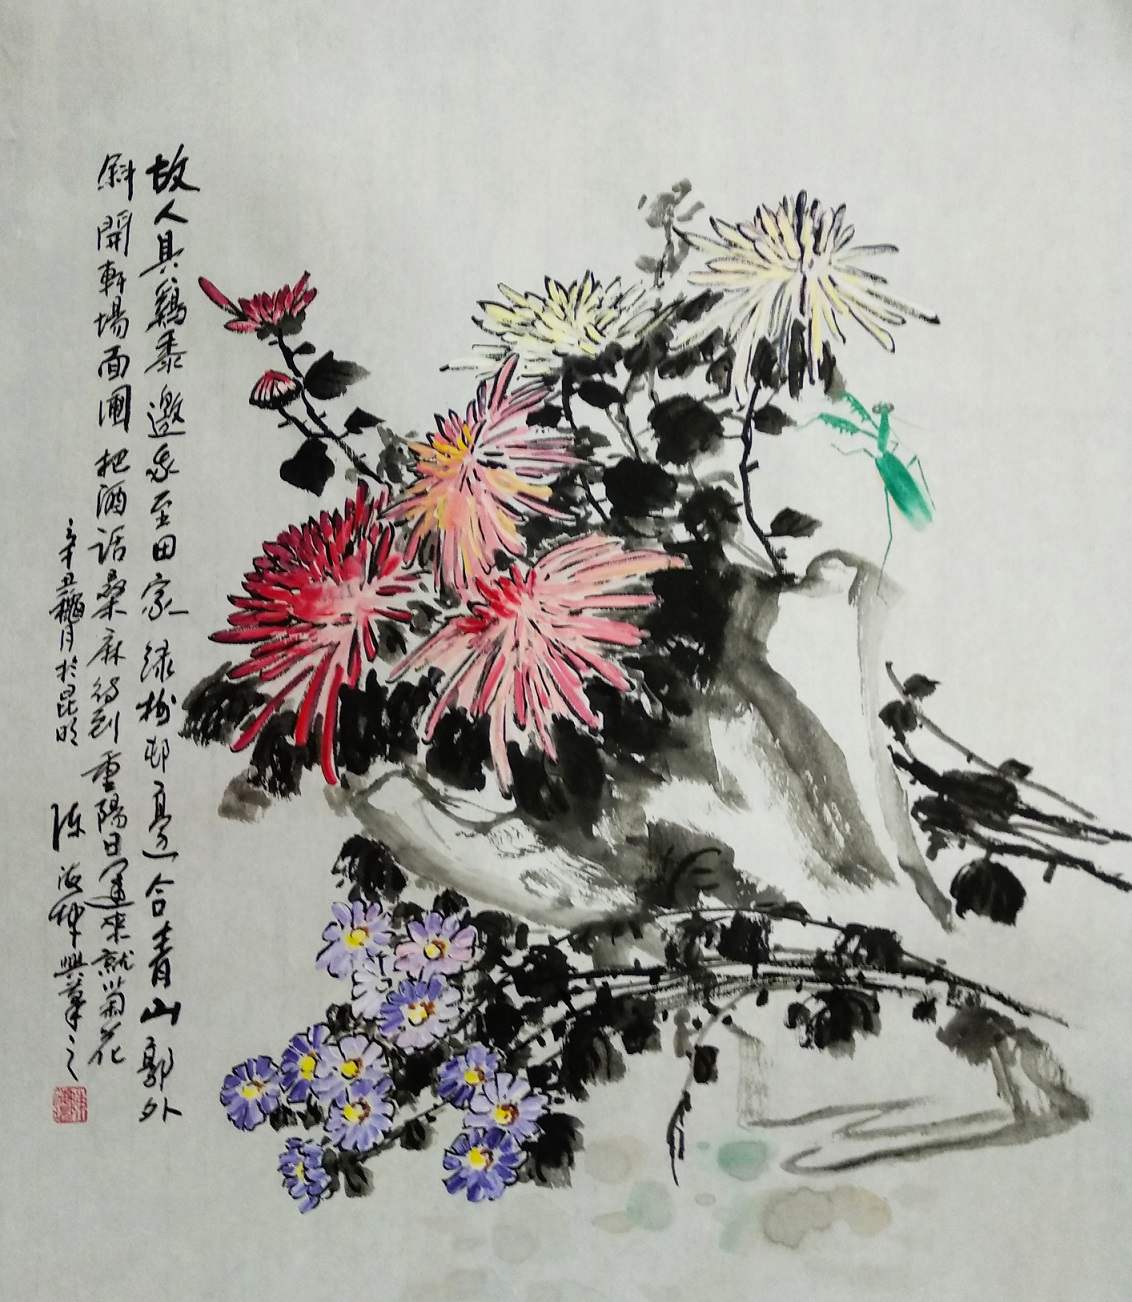 故人具鷄黍邀我至田家绿樹邨邊合青山郭外
斜開軒場面圃把酒話桑麻待到重陽日還來就菊花
辛丑龝月於昆明
陈海坤興筆之